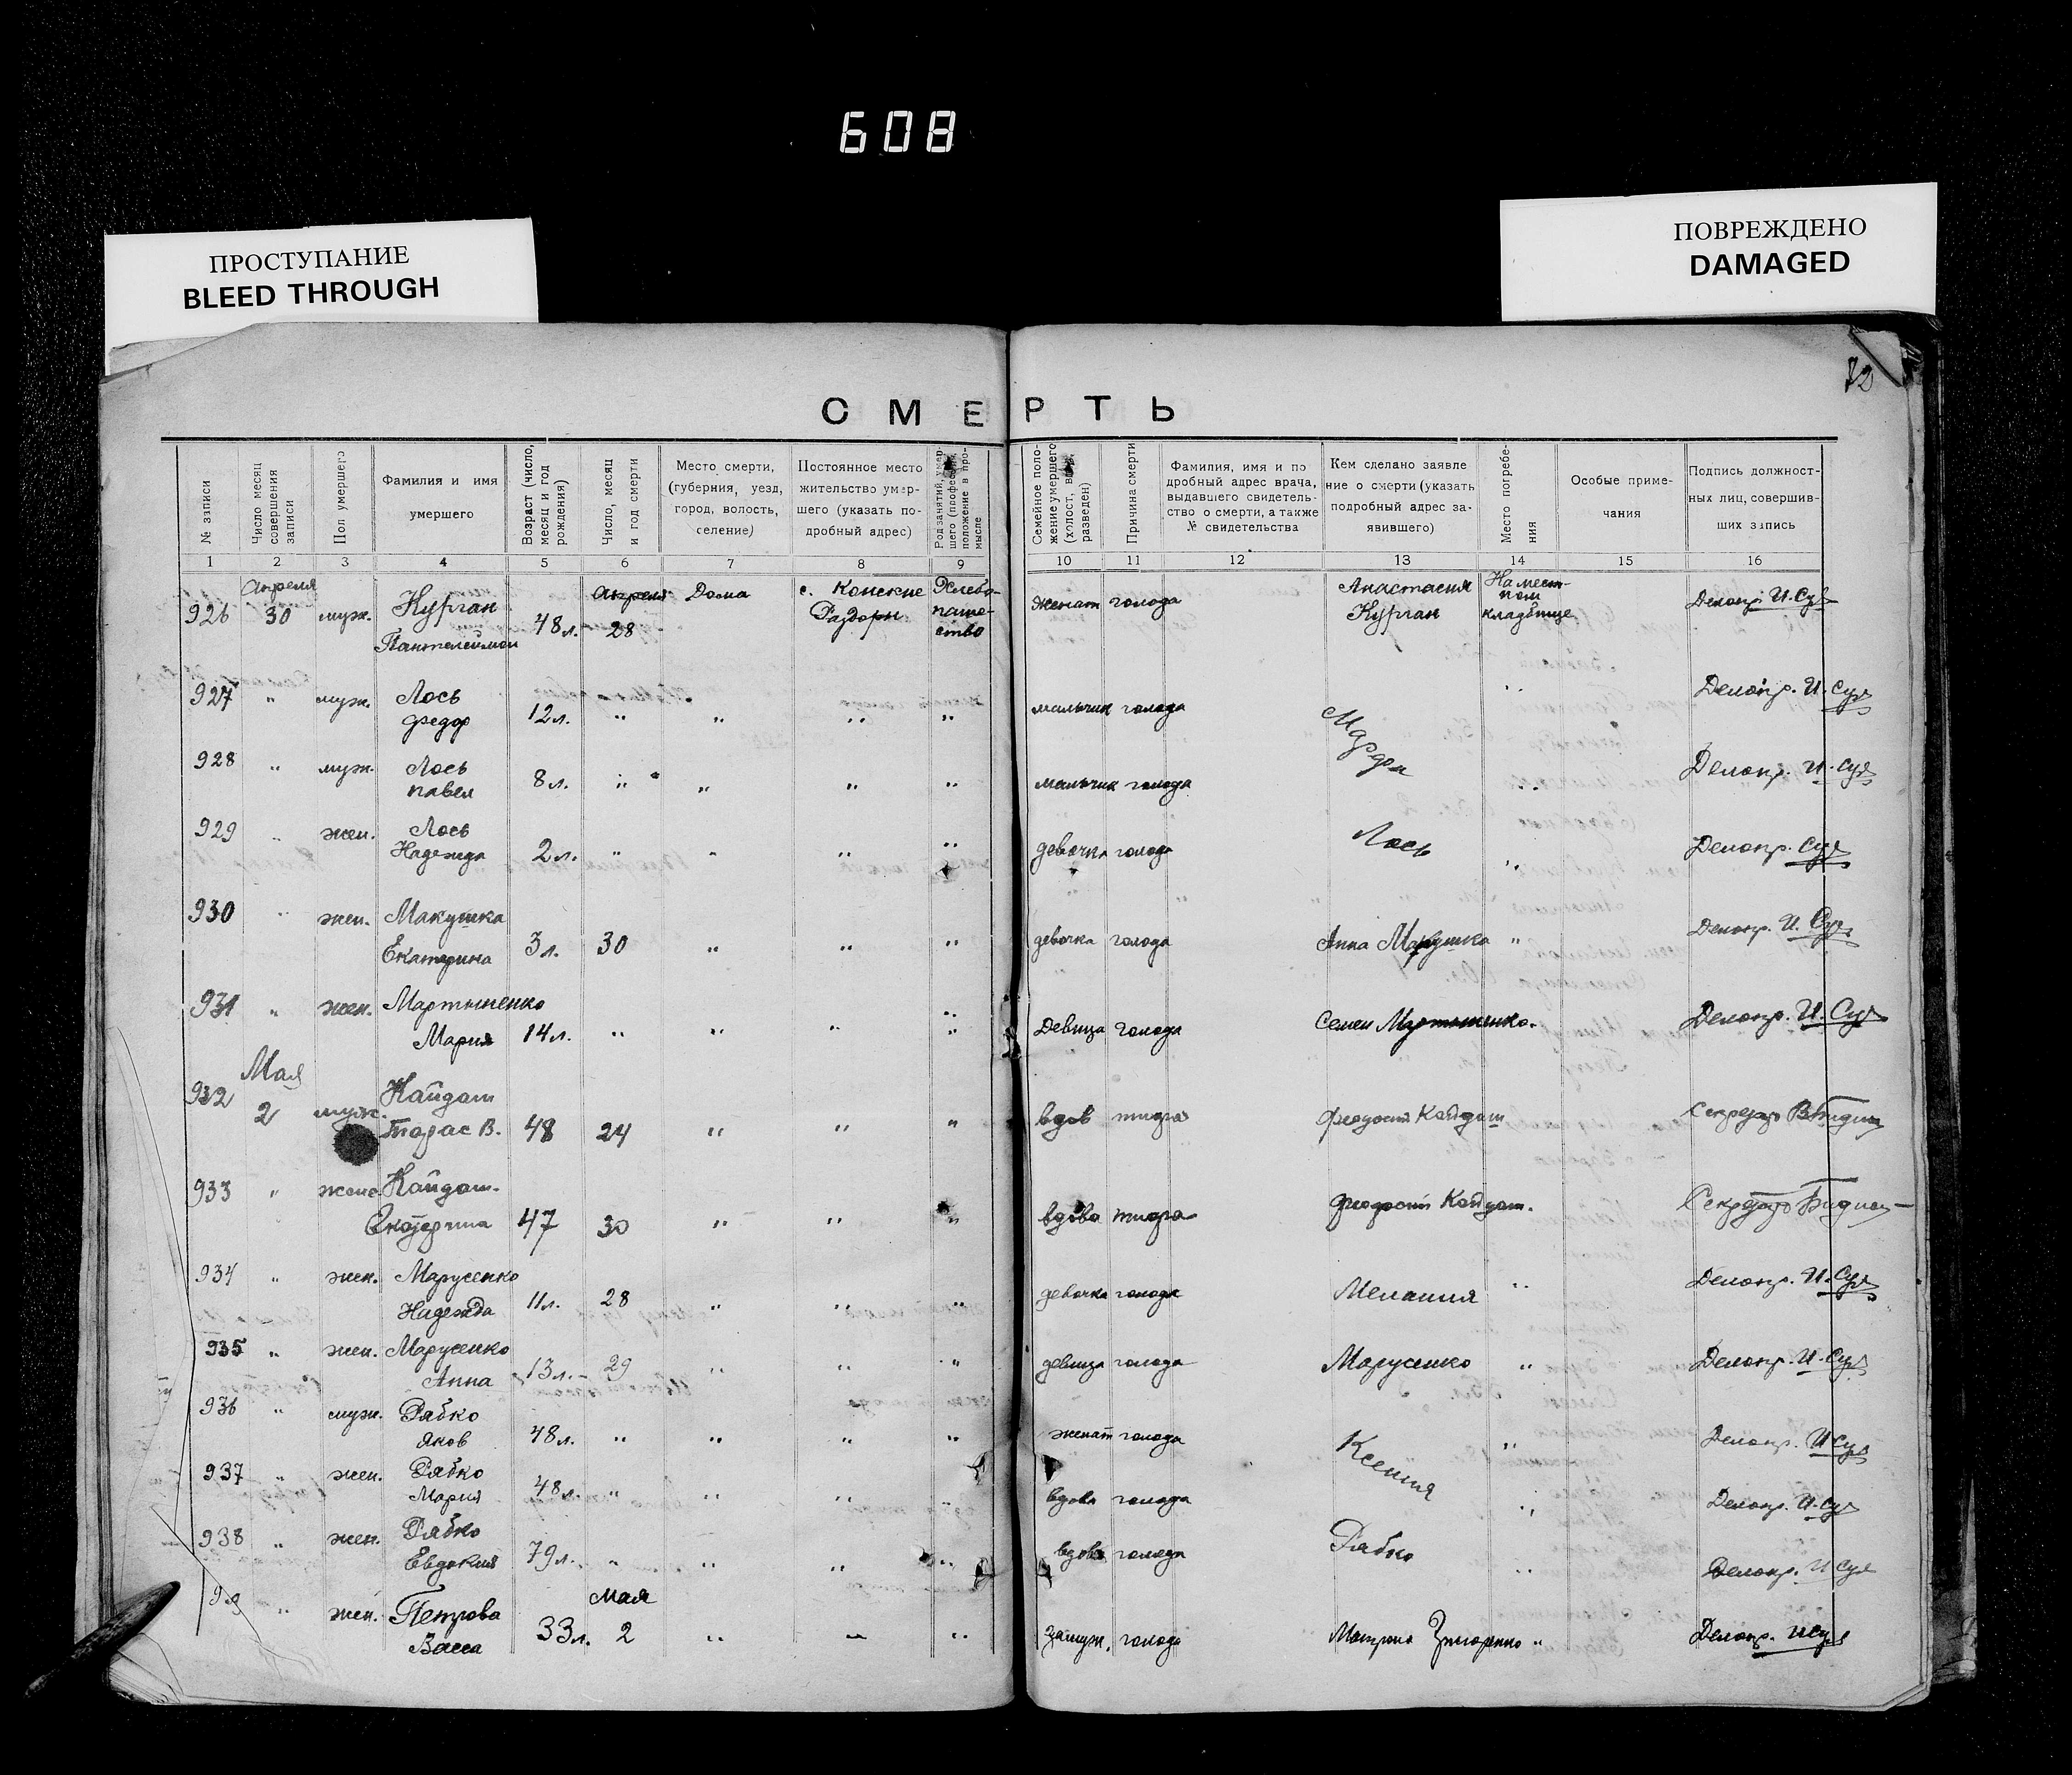 608
ПРОСТУПАНИЕ
BLEED THROUGH
ПОВРЕЖДЕНО
DAMAGED
72
СМЕРТЬ
№ записи
Число месяц совершения записи
Пол умершего
Фамилия и имя умершего
Возраст (число, месяц и год рождения)
Число, месяц и год смерти
Место смерти, (губерния, уезд, город, волость, селение)
Постоянное место жительство умершего (указать подробный адрес)
Род занятий, умершего (профессия, положение в промысле
Семейное положение умершего (холост, вдов, разведен)
Причина смерти
Фамилия, имя и по дробный адрес врача, выдавшего свидетельство о смерти, а также № свидетельства
Кем сделано заявле ние о смерти (указать подробный адрес заявившего)
Место погребения
Особые примечания
Подпись должностных лиц, совершивших запись
1 2 3 4 5 6 7 8 9 10 11 12 13 14 15 16
926 Апреля 30 муж. Курган Пантелеймон 48 л. Апреля 28 Дома с. Конские Раздоры Хлебопашество женат голода Анастасия Курган На мест- ном кладбище Делопр. И. Суя
927 " муж. Лось Федор 12 л. " " " " мальчик голода " Делопр. И. Суя
928 " муж. Лось Павел 8 л. " " " " мальчик голода " Делопр. И. Суя
929 " жен. Лось Надежда 2 л. " " " " девочка голода Лось " Делопр. Суя
930 " жен. Макушка Екатерина 3 л. 30 " " " девочка голода Анна Макушка " Делопр. И. Суя
931 " жен. Мартыненко Мария 14 л. " " " " Девица голода Семен Мартыненко. Делопр. И. Суя
932 Мая 2 муж. Кайдаш Тарас В. 48 24 " " " вдов Кайдаш Секретарь
933 " Кайдаш Екатерина 47 30 " " " вдова Кайдаш. Секретарь
934 " жен. Марусенко Надежда 11 л. 28 " " " девочка голода Мелания " Делопр. И. Суя
935 " жен. Марусенко Анна 13 л. 29 " " " девица голода Марусенко " Делопр. И. Суя
936 " муж. Рябко Яков 48 л. " " " " женат голода Ксения " Делопр. И Суя
937 " жен. Рябко Мария 48 л. " " " " вдова голода " Делопр. И. Суя
938 " жен. Рябко Евдокия 79 л. " " " " вдова голода Рябко " Делопр. И Суя
939 " жен. Петрова Васса 33 л. Мая 2 " " " замуж. голода Матрена " Делопр. И Суя